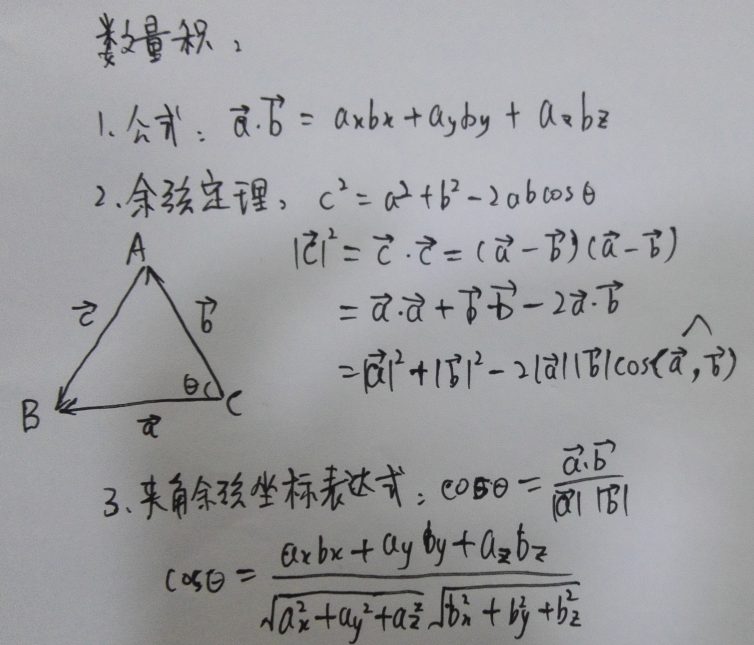 数量积:
1、公式: a⃗·b⃗ = axbx + ayby + azbz
2、余弦定理: c² = a² + b² - 2abcosθ
|c⃗|² = c⃗·c⃗ = (a⃗ - b⃗)(a⃗ - b⃗)
= a⃗·a⃗ + b⃗·b⃗ - 2a⃗·b⃗
= |a⃗|² + |b⃗|² - 2|a⃗||b⃗|cos(a⃗,^b⃗)
A
c⃗ b⃗
θ
B a⃗ C
3、夹角余弦坐标表达式: cosθ = a⃗·b⃗ / |a⃗| |b⃗|
cosθ = axbx + ayby + azbz / √(ax² + ay² + az²) √(bx² + by² + bz²)